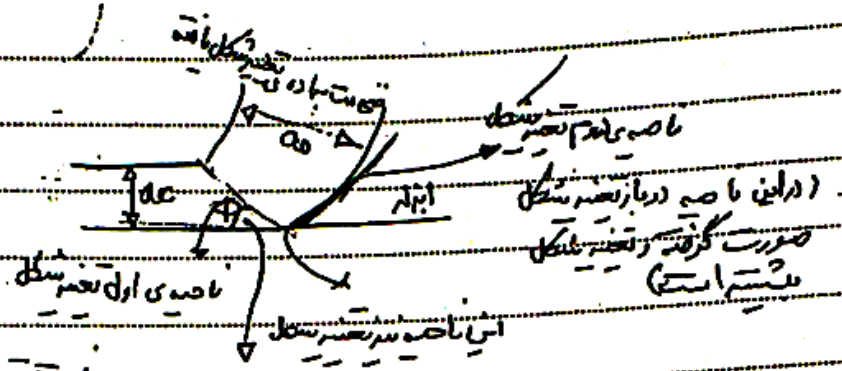 تغییر شکل یافته
قسمت ساده ی
a₀
ناحیه ی دوم تغییر شکل
ac
ابزار
(در این ناحیه دوباره تغییر شکل
صورت گرفته و تغییر شکل
بیشتر است)
φ
ناحیه ی اول تغییر شکل
این ناحیه نیز تغییر شکل